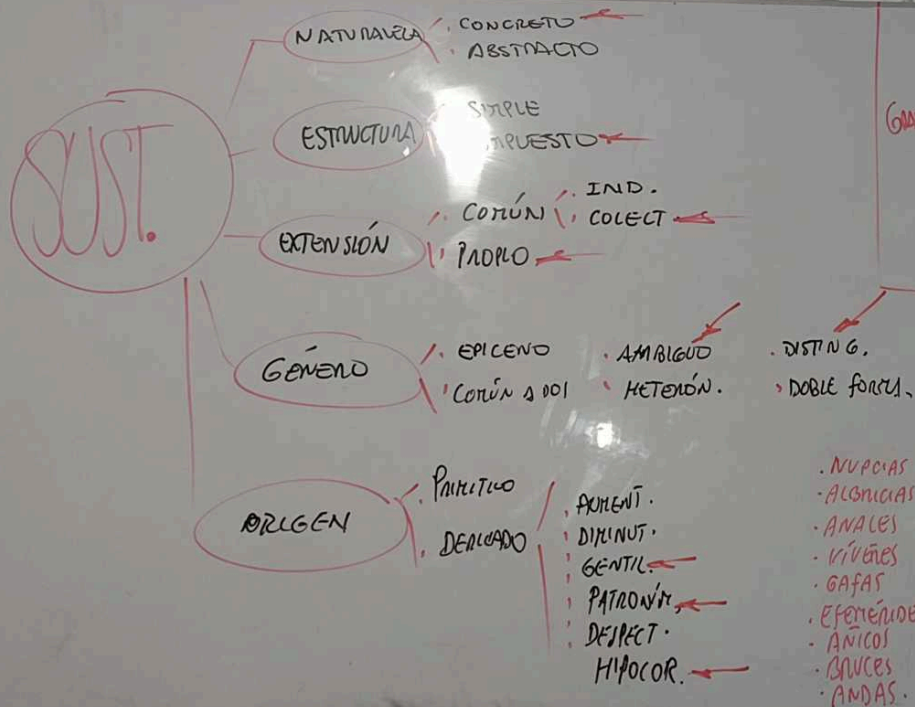 SUST.
NATURALEZA
· CONCRETO
· ABSTRACTO
ESTRUCTURA
SIMPLE
MPUESTO
EXTENSIÓN
· COMÚN
· IND.
· COLECT
· PROPIO
GÉNERO
· EPICENO · AMBIGUO · DISTING.
· COMÚN A DOS · HETERÓN. · DOBLE FORMA.
ORIGEN
· PRIMITIVO
· DERIVADO
· AUMENT.
· DIMINUT.
· GENTIL.
· PATRONÍM.
· DESPECT.
HIPOCOR.
· NUPCIAS
· ALBRICIAS
· ANALES
· VÍVERES
· GAFAS
· EFEMÉRIDE
· AÑICOS
· BRUCES
· ANDAS.